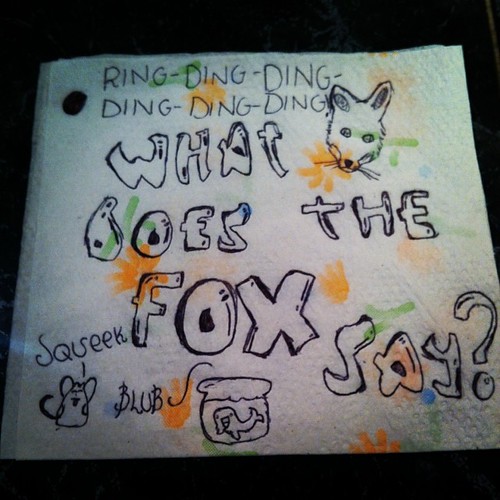 RING-DING-DING-
DING-DING-DING
WHAT
DOES THE
FOX
SAY?
Squeek
BLUB